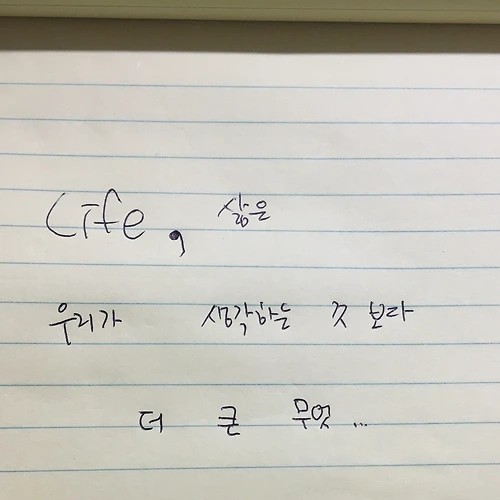 Life, 삶은
우리가 생각하는 것 보다
더 큰 무엇...